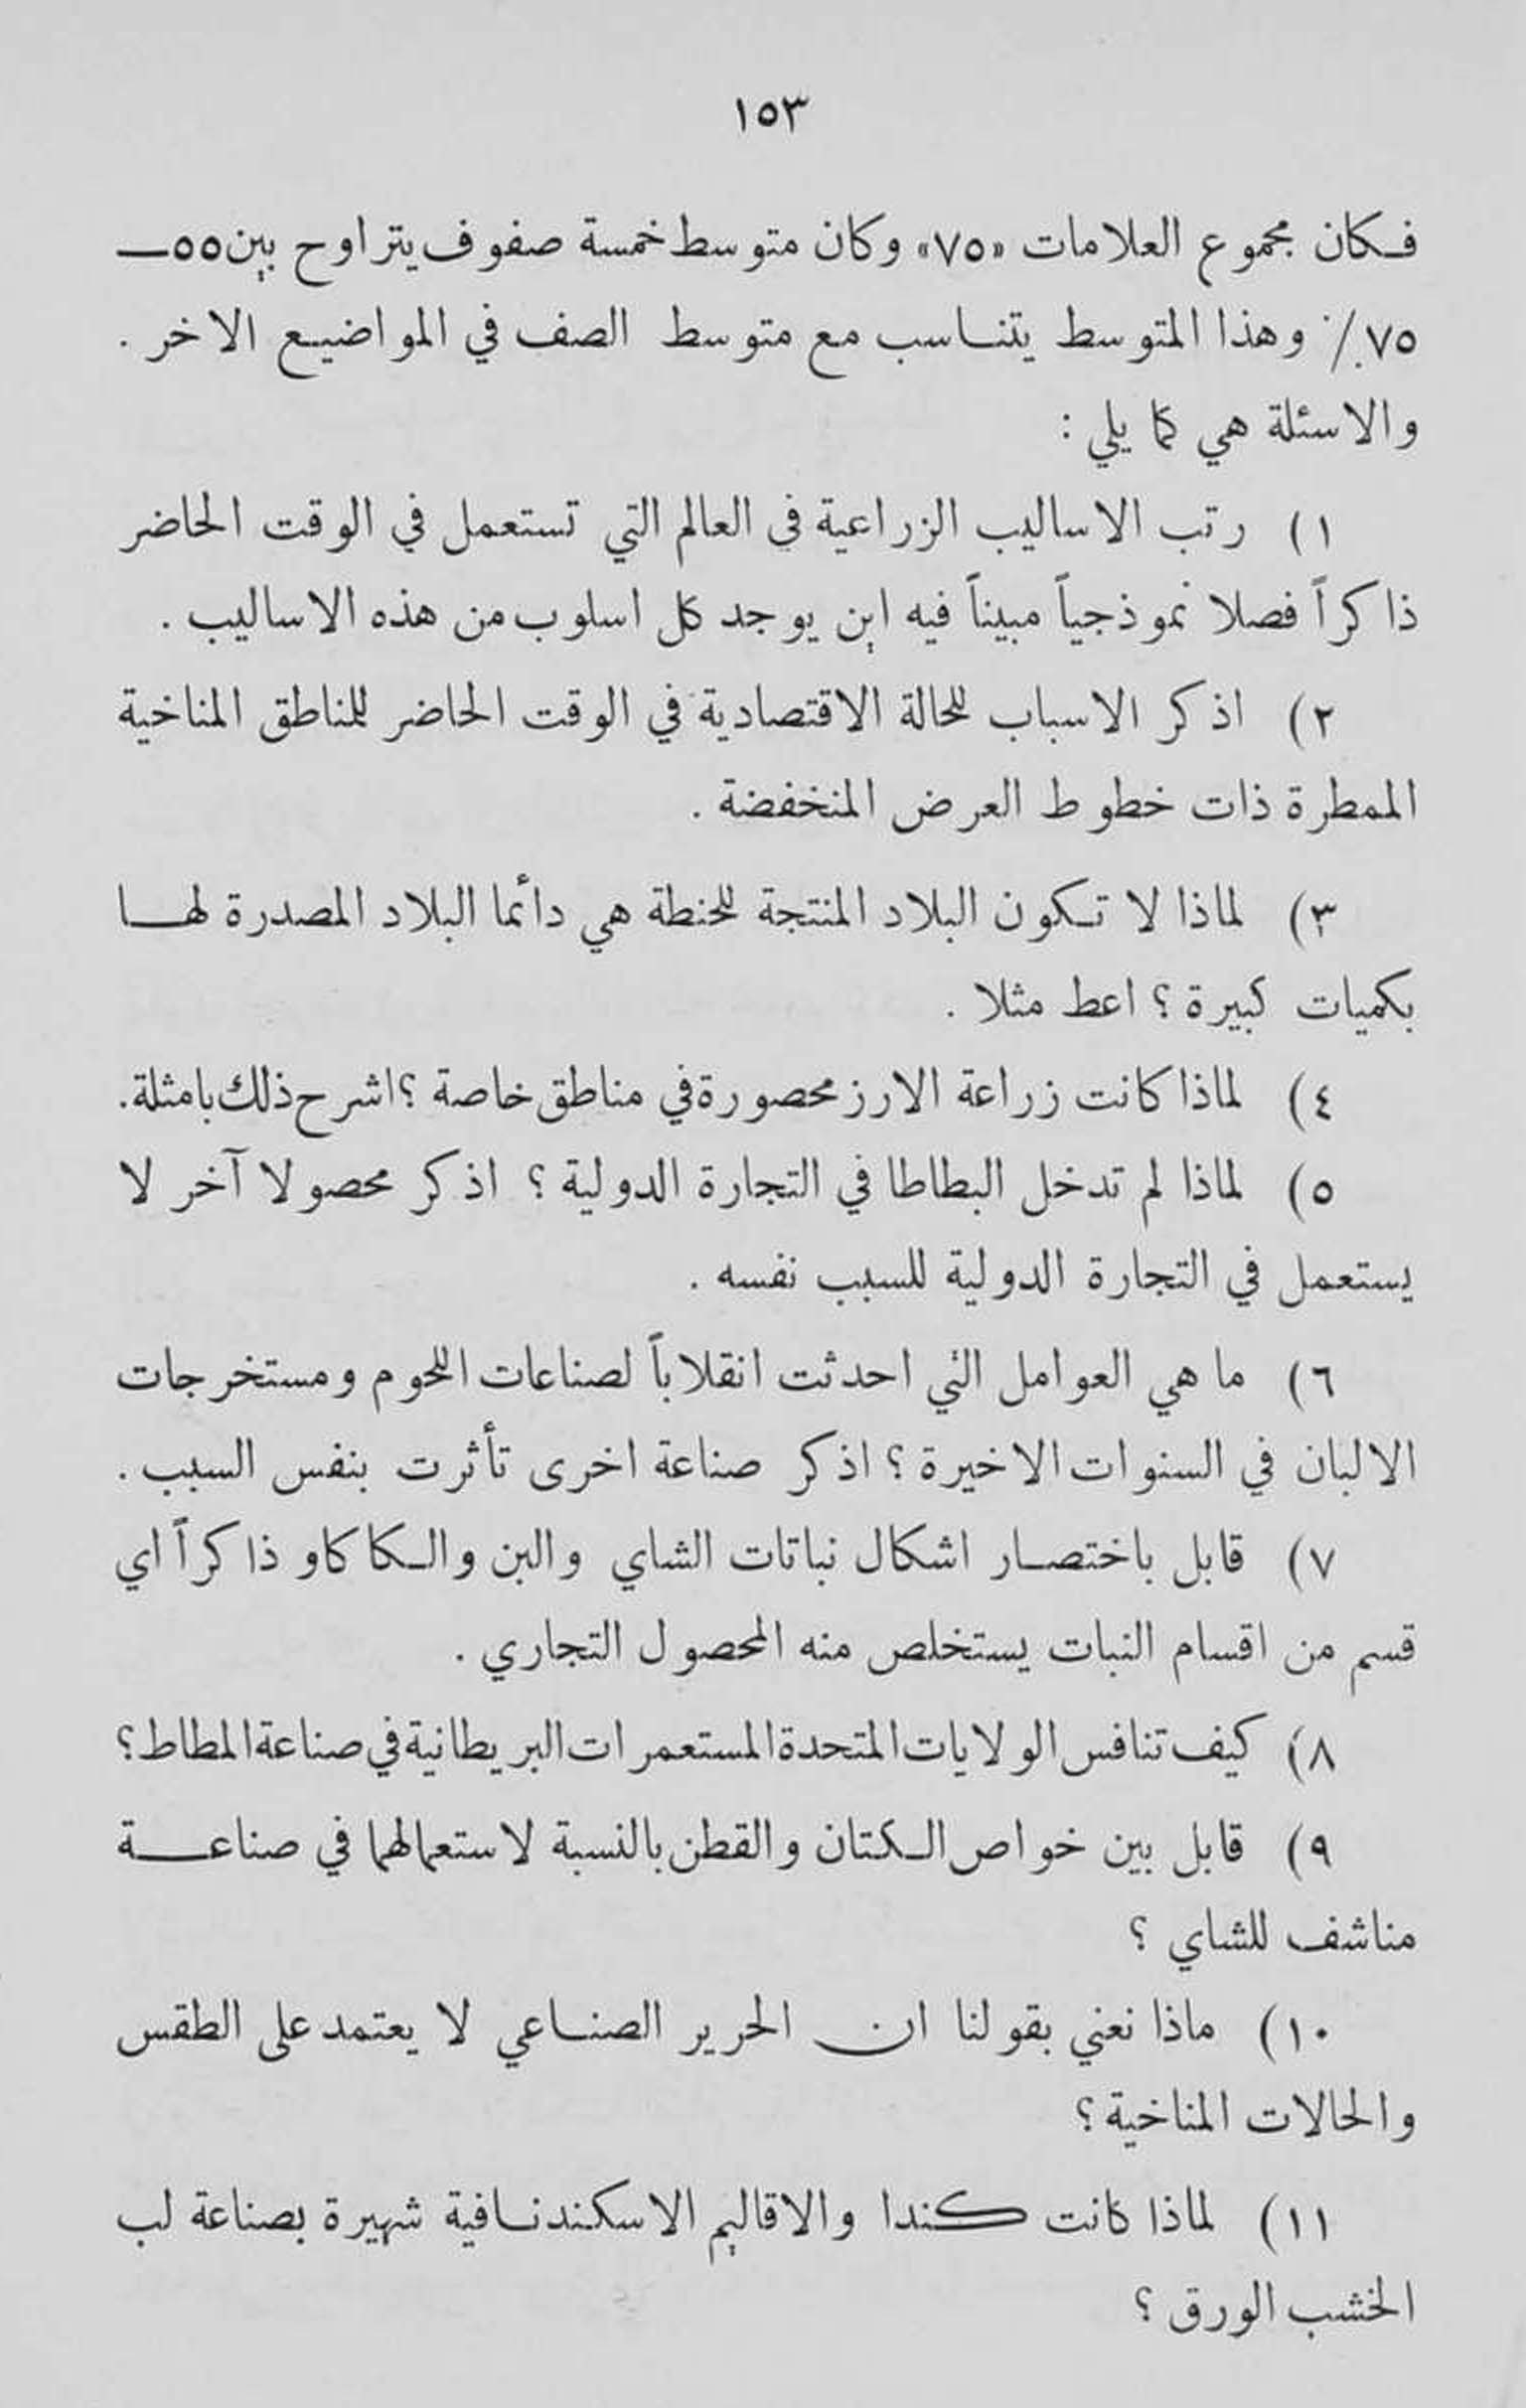 ١٥٣
فكان مجموع العلامات «٧٥» وكان متوسط خمسة صفوف يتراوح بين ٥٥ـ
٧٥٪ وهذا المتوسط يتناسب مع متوسط الصف في المواضيع الاخر .
والاسئلة هي كما يلي :
١) رتب الاساليب الزراعية في العالم التي تستعمل في الوقت الحاضر
ذاكراً فصلا نموذجياً مبيناً فيه اين يوجد كل اسلوب من هذه الاساليب .
٢) اذكر الاسباب للحالة الاقتصادية في الوقت الحاضر للمناطق المناخية
الممطرة ذات خطوط العرض المنخفضة .
٣) لماذا لا تكون البلاد المنتجة للحنطة هي دائما البلاد المصدرة لها
بكميات كبيرة ؟ اعط مثلا .
٤) لماذا كانت زراعة الارز محصورة في مناطق خاصة ؟ اشرح ذلك بامثلة .
٥) لماذا لم تدخل البطاطا في التجارة الدولية ؟ اذكر محصولا آخر لا
يستعمل في التجارة الدولية للسبب نفسه .
٦) ما هي العوامل التي احدثت انقلاباً لصناعات اللحوم ومستخرجات
الالبان في السنوات الاخيرة ؟ اذكر صناعة اخرى تأثرت بنفس السبب .
٧) قابل باختصار اشكال نباتات الشاي والبن والكاكاو ذاكراً اي
قسم من اقسام النبات يستخلص منه المحصول التجاري .
٨) كيف تنافس الولايات المتحدة المستعمرات البريطانية في صناعة المطاط ؟
٩) قابل بين خواص الكتان والقطن بالنسبة لاستعمالهما في صناعة
مناشف للشاي ؟
١٠) ماذا نعني بقولنا ان الحرير الصناعي لا يعتمد على الطقس
والحالات المناخية ؟
١١) لماذا كانت كندا والاقاليم الاسكندنافية شهيرة بصناعة لب
الخشب الورق ؟